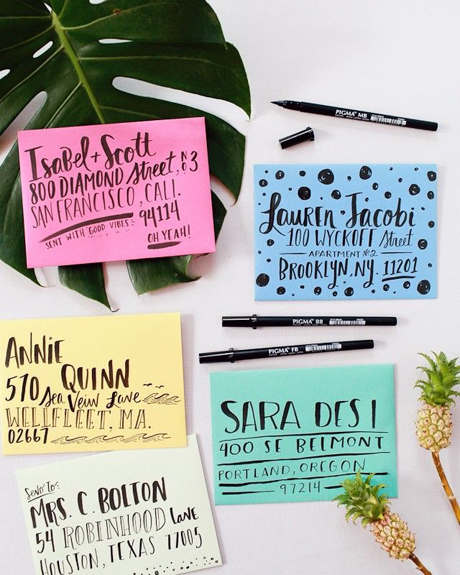 PIGMA MB
IsaBel + Scott
800 DIAMOND Street, No 3
SAN FRANCISCO, CALI.
94114
SENT WITH GOOD VIBES
OH YEAH!
Lauren Jacobi
100 WYCKOFF Street
APARTMENT No. 2
BROOKLYN, NY. 11201
PIGMA BB
PIGMA FB
ANNIE
QUINN
570 Sea View Lane
WELLFLEET, MA.
02667
SARA DESI
400 SE BELMONT
PORTLAND, OREGON
97214
Send to:
MRS. C. BOLTON
54 ROBINHOOD Lane
HOUSTON, TEXAS 77005